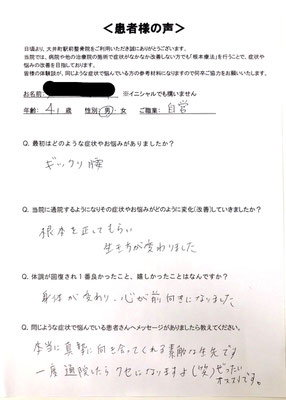 ＜患者様の声＞
日頃より、大井町駅前整骨院をご利用いただき誠にありがとうございます。
当院では、病院や他の治療院の施術で症状がなかなか改善しない方でも「根本療法」を行うことで、症状や
悩みの改善を目指しております。
皆様の体験談が、同じような症状で悩んでいる方の参考材料になりますので何卒ご協力をお願いいたします。
お名前 ※イニシャルでも構いません
年齢: 41 歳 性別: 男・女 ご職業: 自営
Q. 最初はどのような症状やお悩みがありましたか?
ギックリ腰
Q. 当院に通院するようになりその症状やお悩みがどのように変化(改善)していきましたか?
根本を正してもらい
生き方が変わりました
Q. 体調が回復され1番良かったこと、嬉しかったことはなんですか?
身体が変わり、心が前向きになりました
Q. 同じような症状で悩んでいる患者さんへメッセージがありましたら教えてください。
本当に真摯に向き合ってくれる素敵な先生です
一度通院したらクセになりますよ(笑)ぜったい
オススメです。